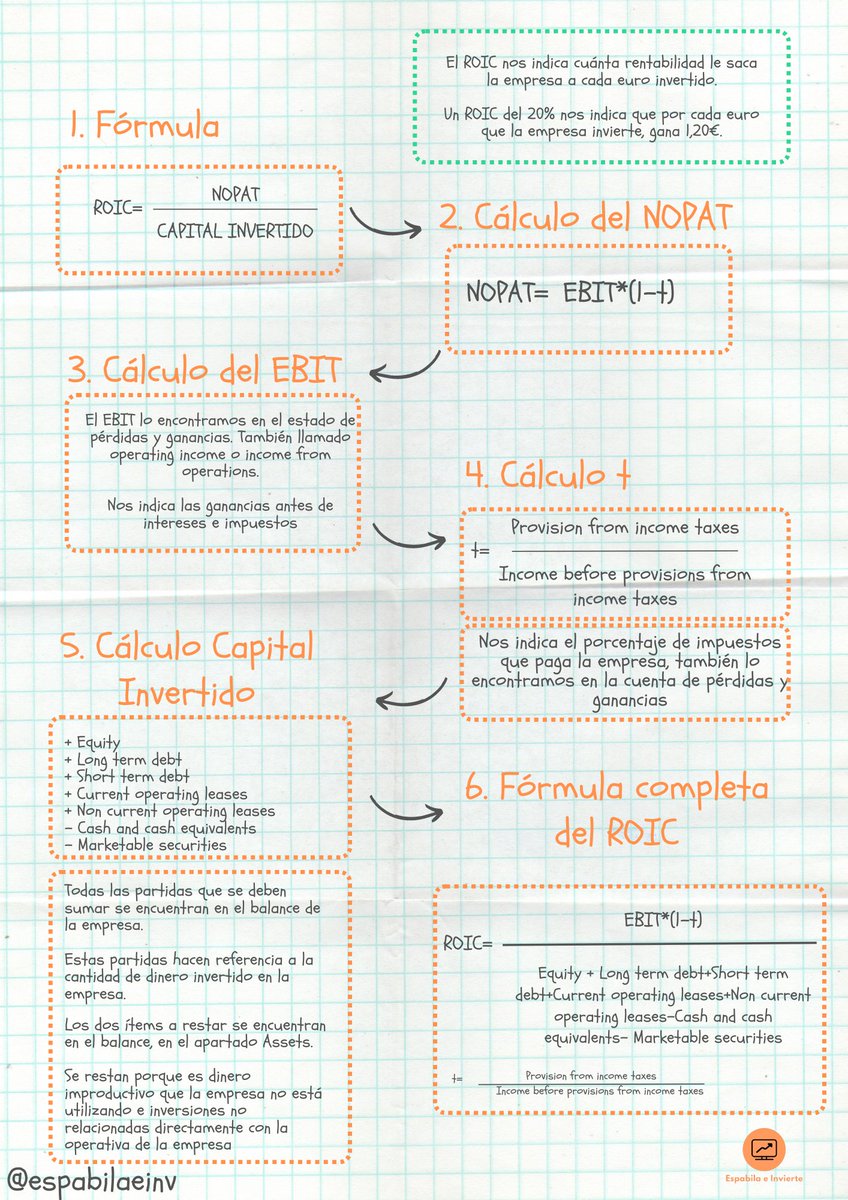 El ROIC nos indica cuánta rentabilidad le saca
la empresa a cada euro invertido.
Un ROIC del 20% nos indica que por cada euro
que la empresa invierte, gana 1,20€.
1. Fórmula
NOPAT
ROIC=
CAPITAL INVERTIDO
2. Cálculo del NOPAT
NOPAT= EBIT*(1-t)
3. Cálculo del EBIT
El EBIT lo encontramos en el estado de
pérdidas y ganancias. También llamado
operating income o income from
operations.
Nos indica las ganancias antes de
intereses e impuestos
4. Cálculo t
Provision from income taxes
t=
Income before provisions from
income taxes
Nos indica el porcentaje de impuestos
que paga la empresa, también lo
encontramos en la cuenta de pérdidas y
ganancias
5. Cálculo Capital
Invertido
+ Equity
+ Long term debt
+ Short term debt
+ Current operating leases
+ Non current operating leases
- Cash and cash equivalents
- Marketable securities
Todas las partidas que se deben
sumar se encuentran en el balance de
la empresa.
Estas partidas hacen referencia a la
cantidad de dinero invertido en la
empresa.
Los dos ítems a restar se encuentran
en el balance, en el apartado Assets.
Se restan porque es dinero
improductivo que la empresa no está
utilizando e inversiones no
relacionadas directamente con la
operativa de la empresa
6. Fórmula completa
del ROIC
EBIT*(1-t)
ROIC=
Equity + Long term debt+Short term
debt+Current operating leases+Non current
operating leases-Cash and cash
equivalents- Marketable securities
Provision from income taxes
t=
Income before provisions from income taxes
@espabilaeinv
Espabila e Invierte